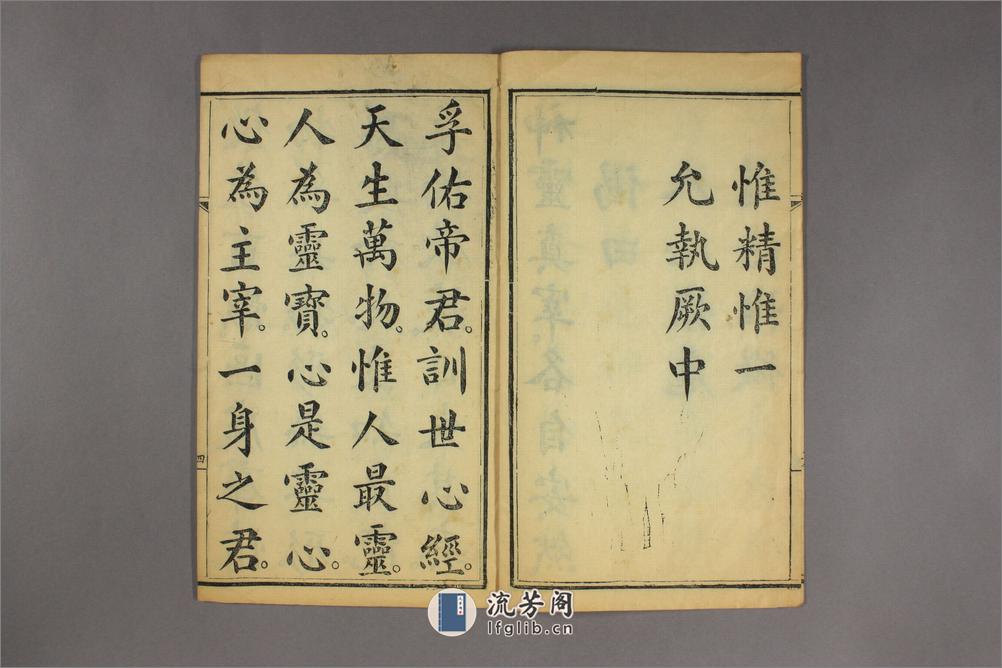 惟精惟一
允執厥中
孚佑帝君。訓世心經。
天生萬物。惟人最靈。
人為靈寶。心是靈心。
心為主宰。一身之君。
四
流芳阁
lfglib.cn